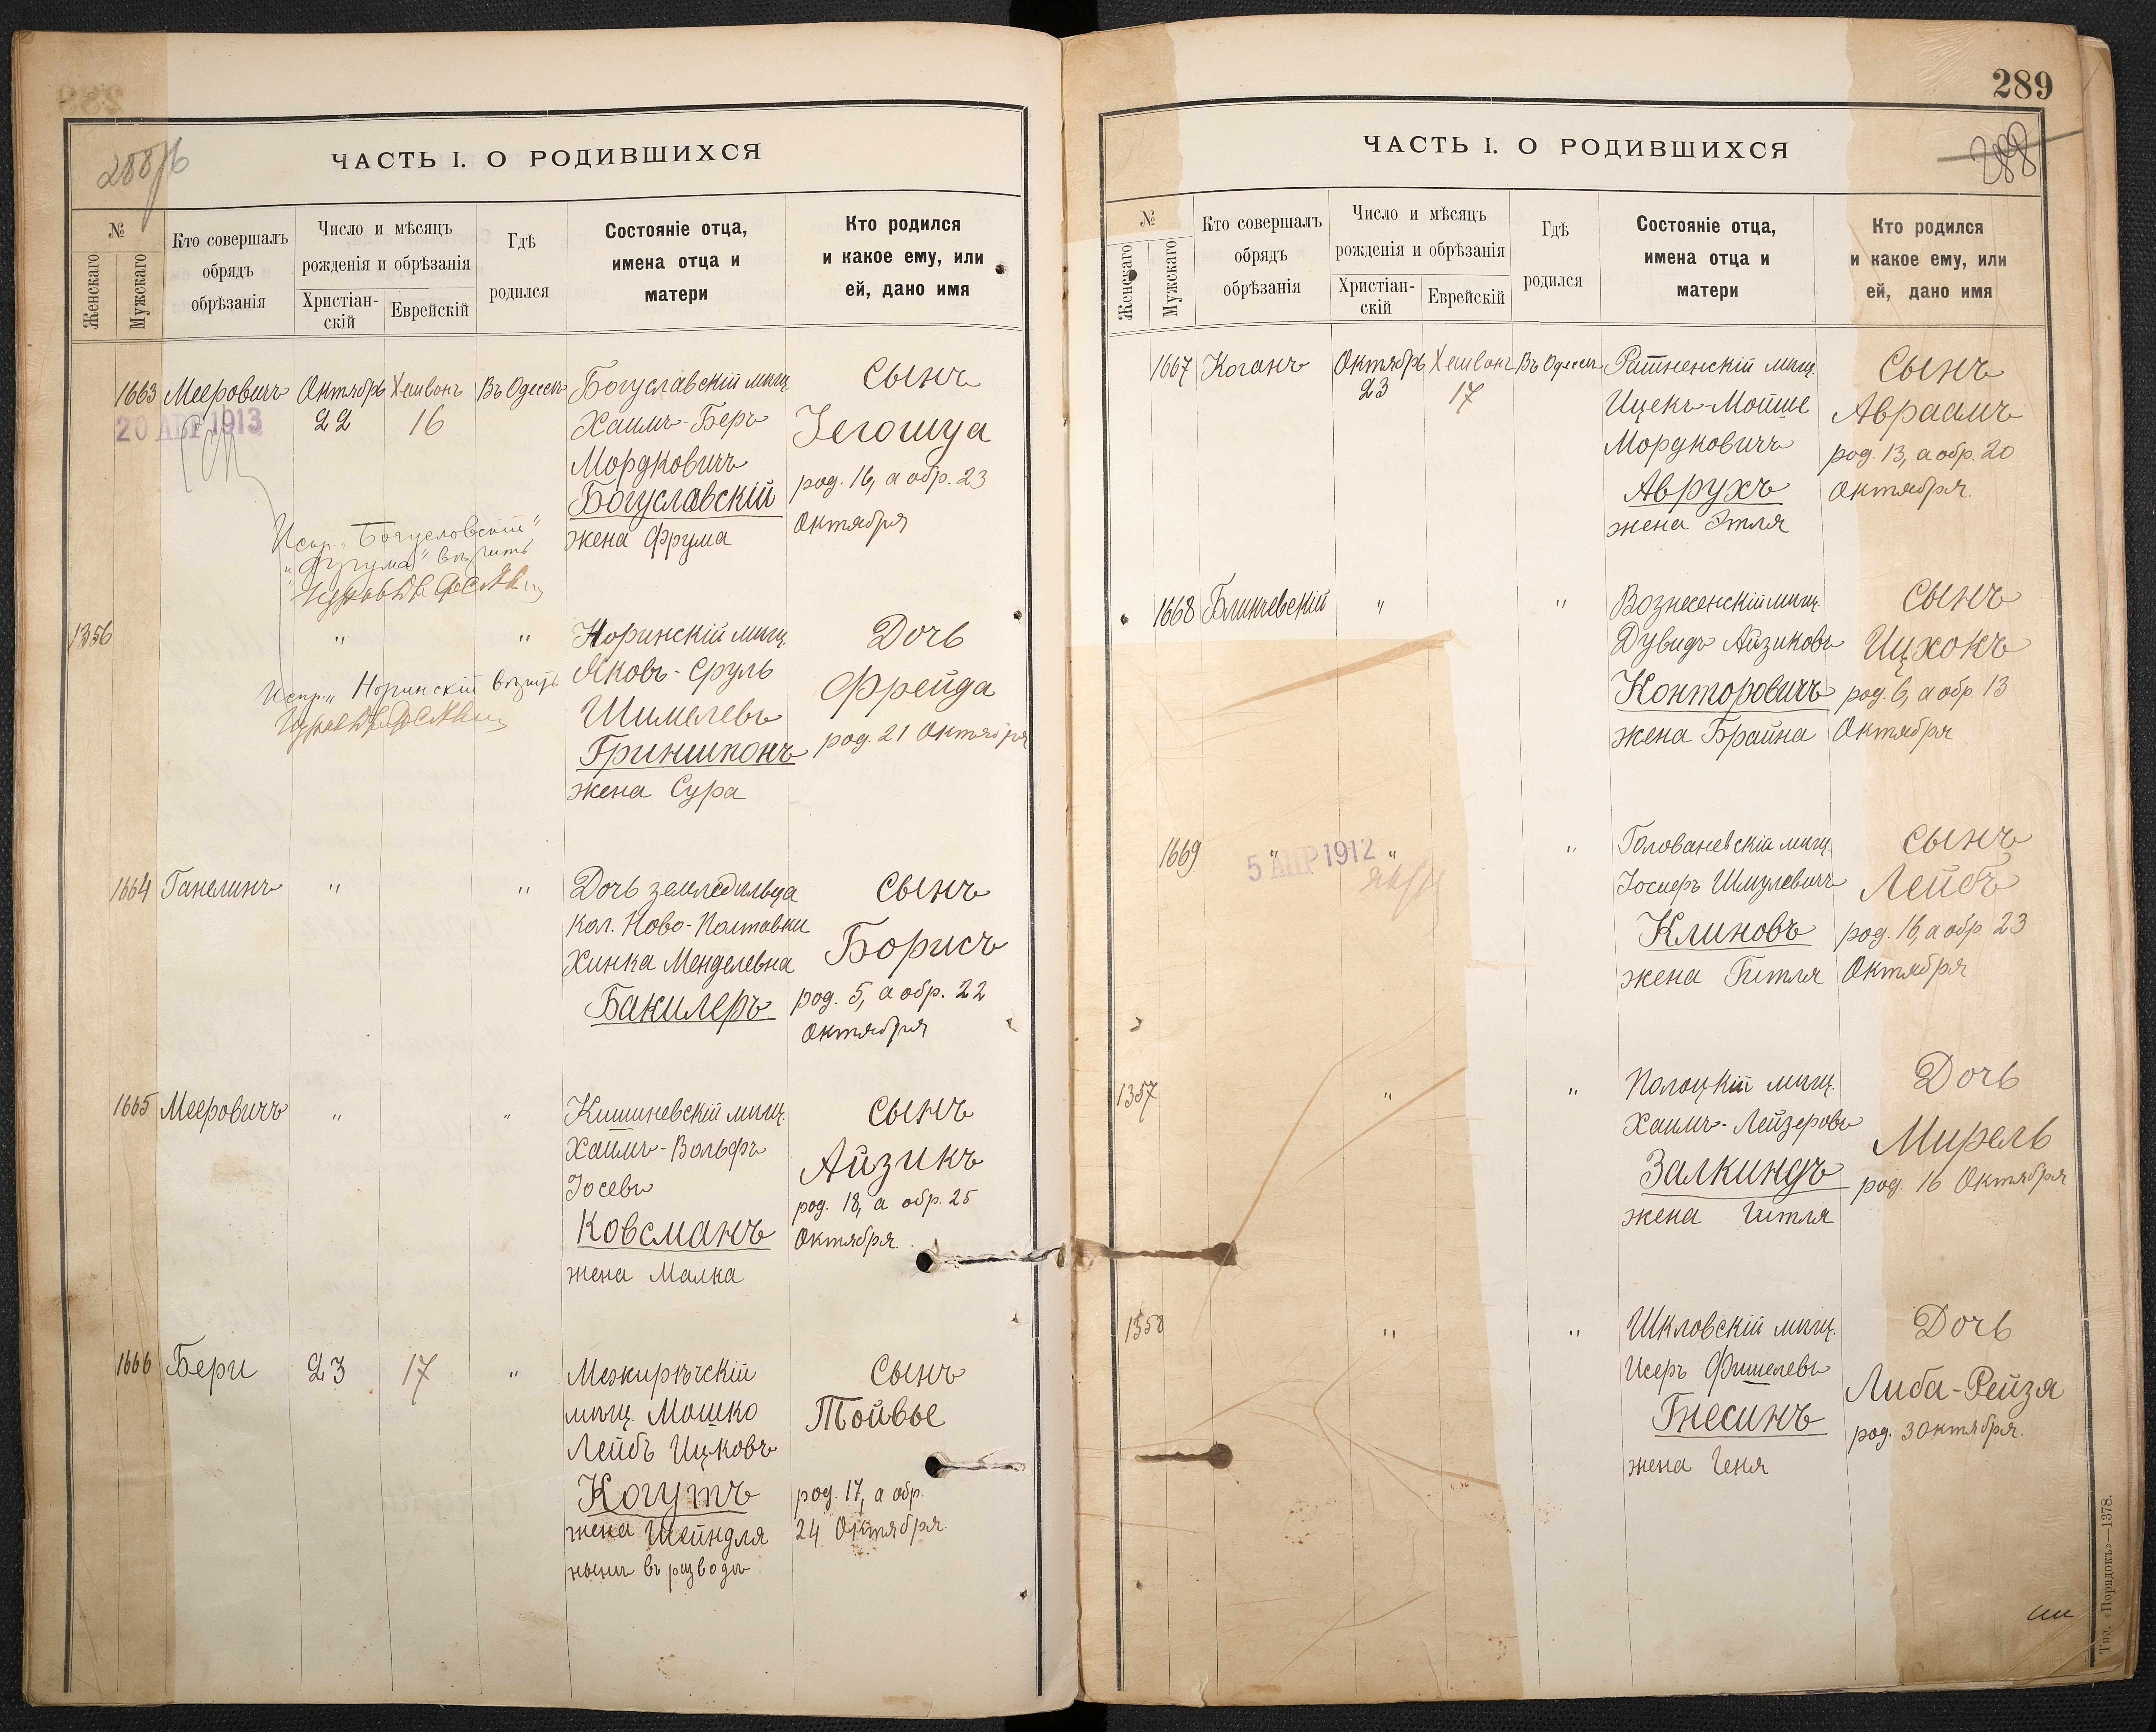 288/б
ЧАСТЬ I. О РОДИВШИХСЯ
№
Женскаго
Мужскаго
Кто совершалъ
обрядъ
обрѣзанія
Число и мѣсяцъ
рожденія и обрѣзанія
Христіан-
скій
Еврейскій
Гдѣ
родился
Состояніе отца,
имена отца и
матери
Кто родился
и какое ему, или
ей, дано имя
1663 Мееровичъ Октябрь Хешванъ Въ Одессѣ Богуславскій мѣщ. Сынъ
20 АПР 1913 22 16 Хаимъ-Беръ Іегошуа
Мордковичъ род. 16, а обр. 23
Богуславскій Октября
жена Фрума
Испр. „Богуславскій“
„Фрума“ вѣрить
1356 " " Норинскій мѣщ. Дочь
Яковъ-Сруль Фрейда
Испр. „Норинскій вѣрить
Шимелевъ род. 21 Октября
Гриншпонъ
жена Сура
1664 Ганелинъ " " Дочь земледѣльца Сынъ
кол. Ново-Полтавки Борисъ
Хинка Менделевна род. 5, а обр. 22
Бакилеръ Октября
1665 Мееровичъ " " Кишиневскій мѣщ. Сынъ
Хаимъ-Вольфъ Айзикъ
Іосевъ род. 18, а обр. 25
Ковсманъ Октября
жена Малка
1666 Бери 23 17 " Межирѣчскій Сынъ
мѣщ. Мошко Тойвье
Лейбъ Ицковъ
Когутъ род. 17, а обр.
жена Шейндля 24 Октября
нынѣ въ разводѣ
289
288
ЧАСТЬ I. О РОДИВШИХСЯ
№
Женскаго
Мужскаго
Кто совершалъ
обрядъ
обрѣзанія
Число и мѣсяцъ
рожденія и обрѣзанія
Христіан-
скій
Еврейскій
Гдѣ
родился
Состояніе отца,
имена отца и
матери
Кто родился
и какое ему, или
ей, дано имя
1667 Коганъ Октябрь Хешванъ Въ Одессѣ Ратненскій мѣщ. Сынъ
23 17 Ицекъ-Мойше Авраамъ
Мордковичъ род. 13, а обр. 20
Аврухъ Октября
жена Этля
1668 " " Вознесенскій мѣщ. Сынъ
Дувидъ Айзиковъ Ицхокъ
Конторовичъ род. 6, а обр 13
жена Брайна Октября
1669 " " " Голованевскій мѣщ. Сынъ
5 АПР 1912 Іосифъ Шмулевичъ Лейбъ
Клиновъ род. 16, а обр. 23
жена Гитля Октября
1357 " " Полоцкій мѣщ. Дочь
Хаимъ-Лейзеровъ Мирель
Залкиндъ род. 16 Октября
жена Гитля
1358 " " Шкловскій мѣщ. Дочь
Исеръ Фишелевъ Либа-Рейзя
Гнесинъ род. 3 Октября.
жена Геня
Тип. «Порядокъ»—1378.